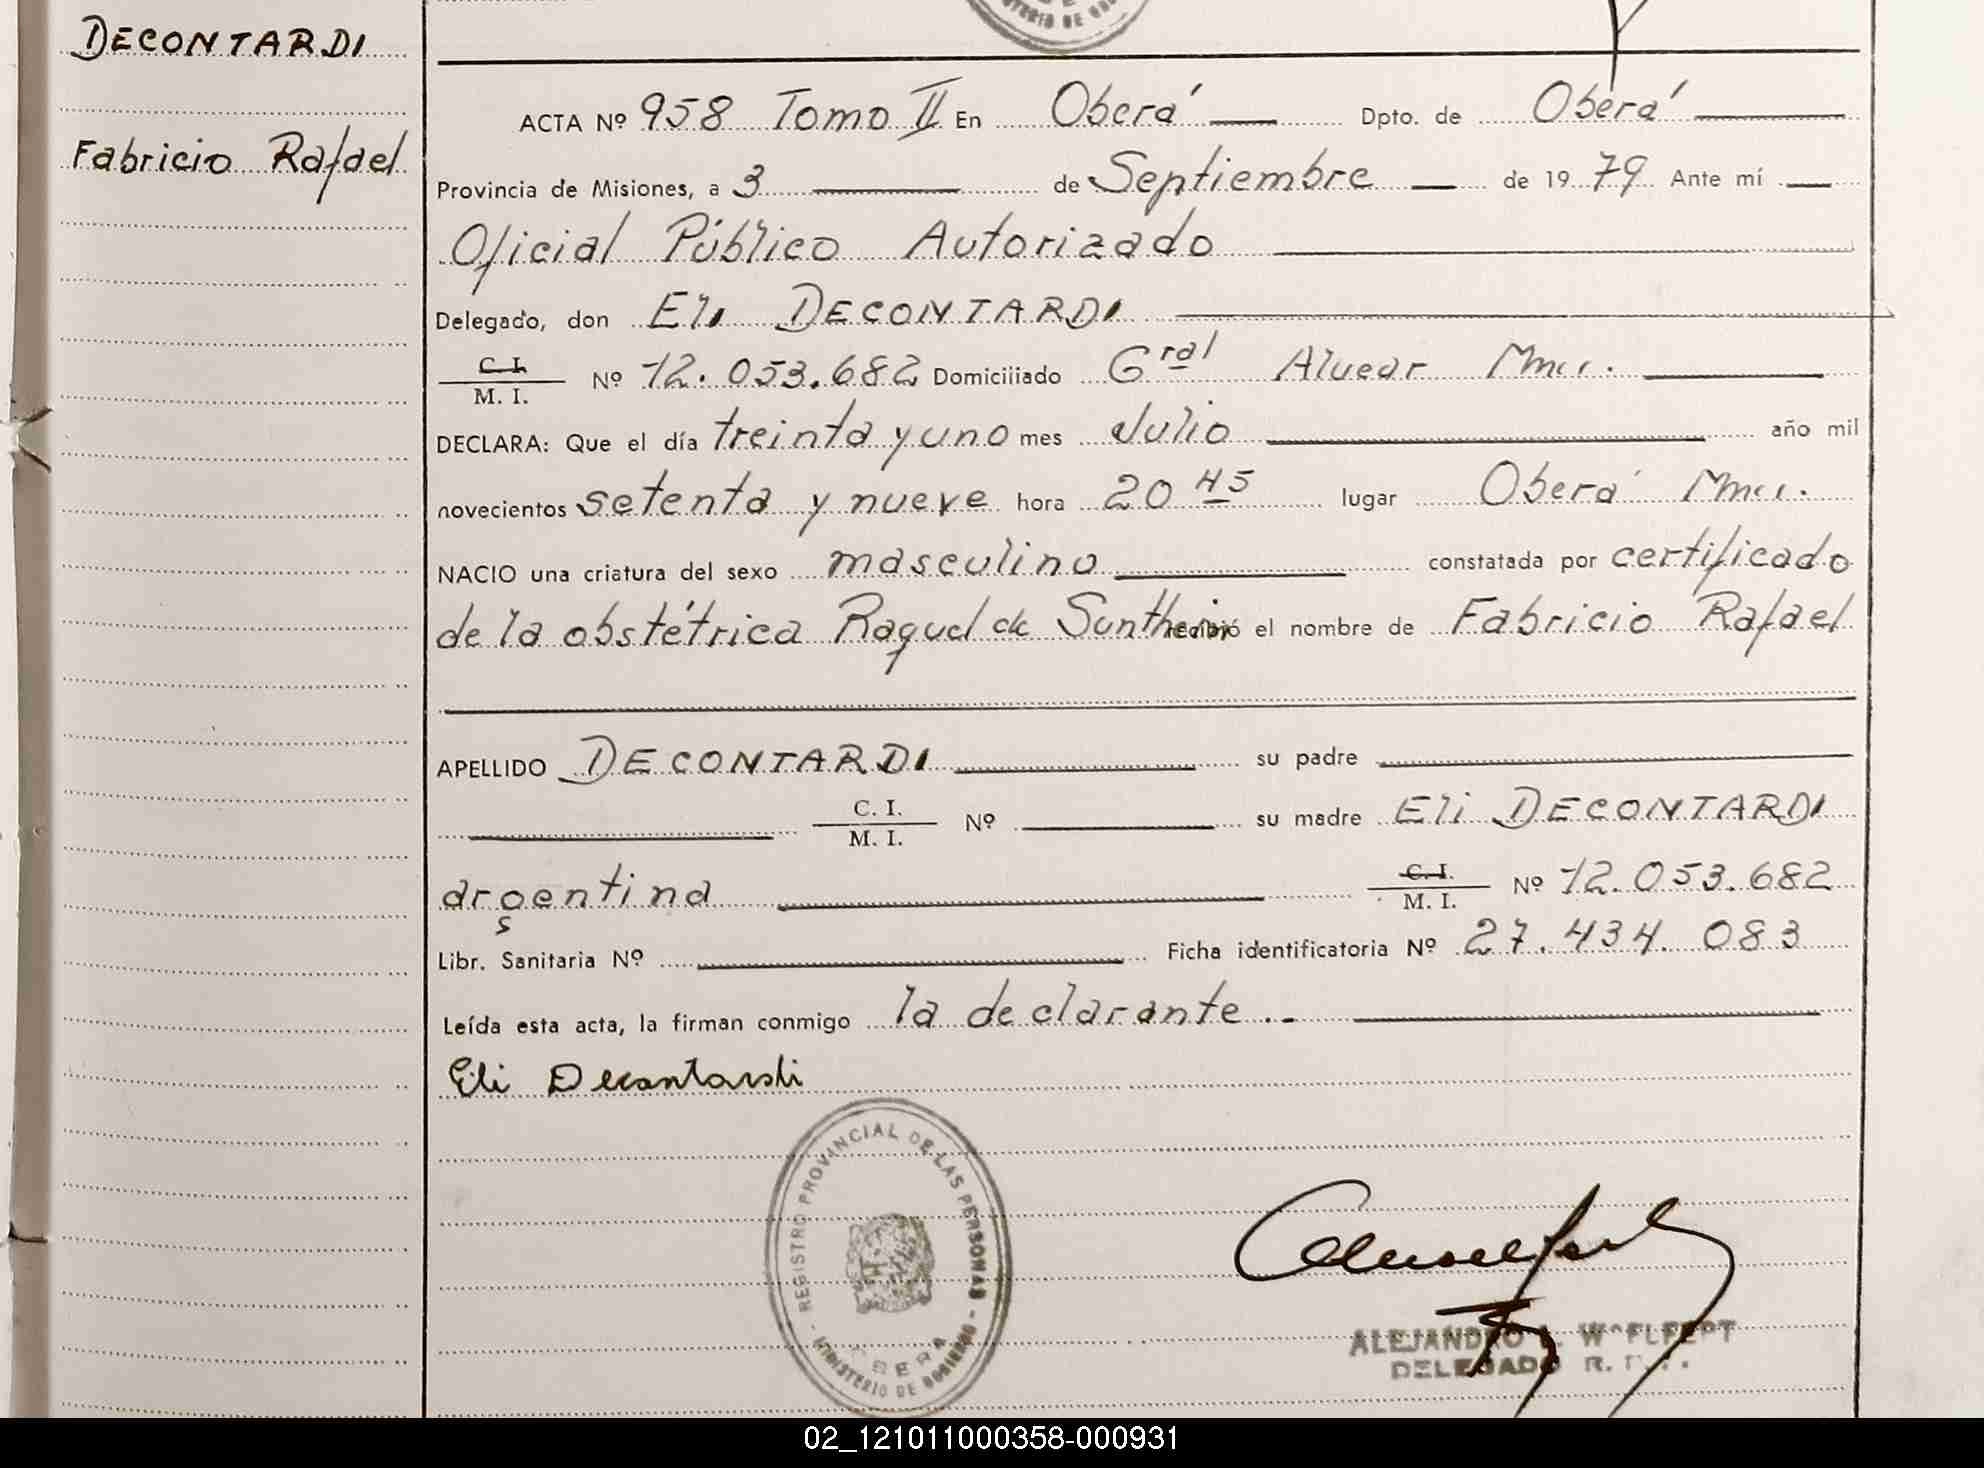 DECONTARDI
Fabricio Rafael
MINISTERIO DE GOBIERNO
ACTA Nº 958 Tomo II En Oberá Dpto. de Oberá
Provincia de Misiones, a 3 de Septiembre de 1979 Ante mí
Oficial Público Autorizado
Delegado, don Eli DECONTARDI
C. I.
M. I. Nº 12.053.682 Domiciliado Gral Alvear Mnes.
DECLARA: Que el día treinta y uno mes Julio año mil
novecientos setenta y nueve hora 20 45 lugar Oberá Mnes.
NACIO una criatura del sexo masculino constatada por certificado
de la obstétrica Raquel de recibió el nombre de Fabricio Rafael
APELLIDO DECONTARDI su padre
C. I.
M. I. Nº su madre Eli DECONTARDI
argentina C. I.
M. I. Nº 12.053.682
Libr. Sanitaria Nº Ficha identificatoria Nº 27.434.083
Leída esta acta, la firman conmigo la declarante..-
Eli Decontardi
REGISTRO PROVINCIAL DE LAS PERSONAS - MINISTERIO DE GOBIERNO -
OBERA
ALEJANDRO
DELEGADO
02_121011000358-000931